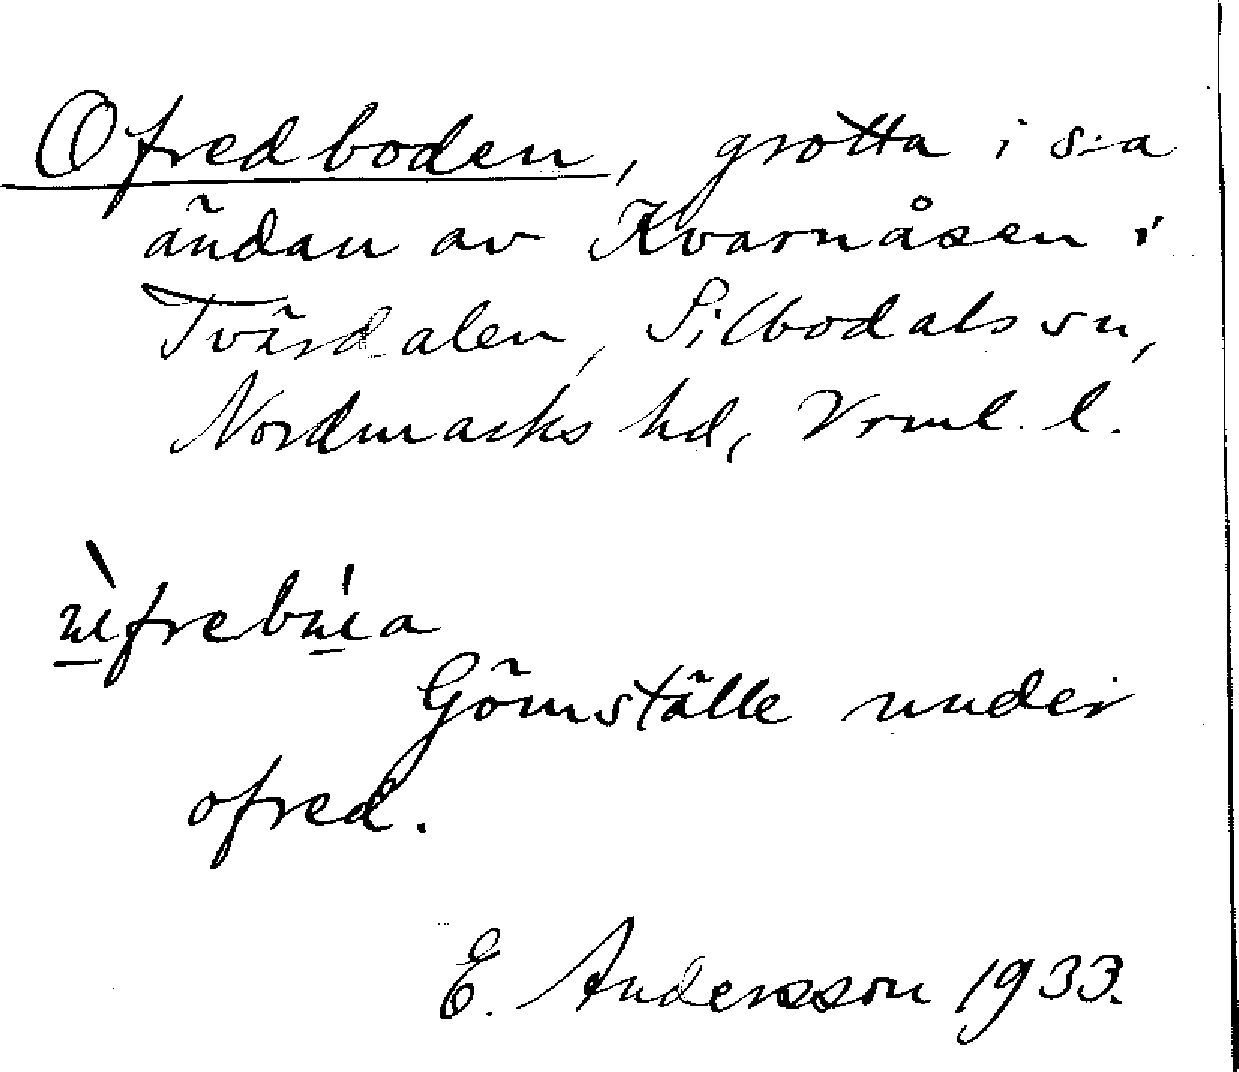 Ofredboden, grotta i s:a
ändan av Kvarnåsen i
Tvärdalen, Silbodals sn,
Nordmarks hd, Vrml. l.
ùfrebúa
Gömställe under
ofred.
E. Andersson 1933.